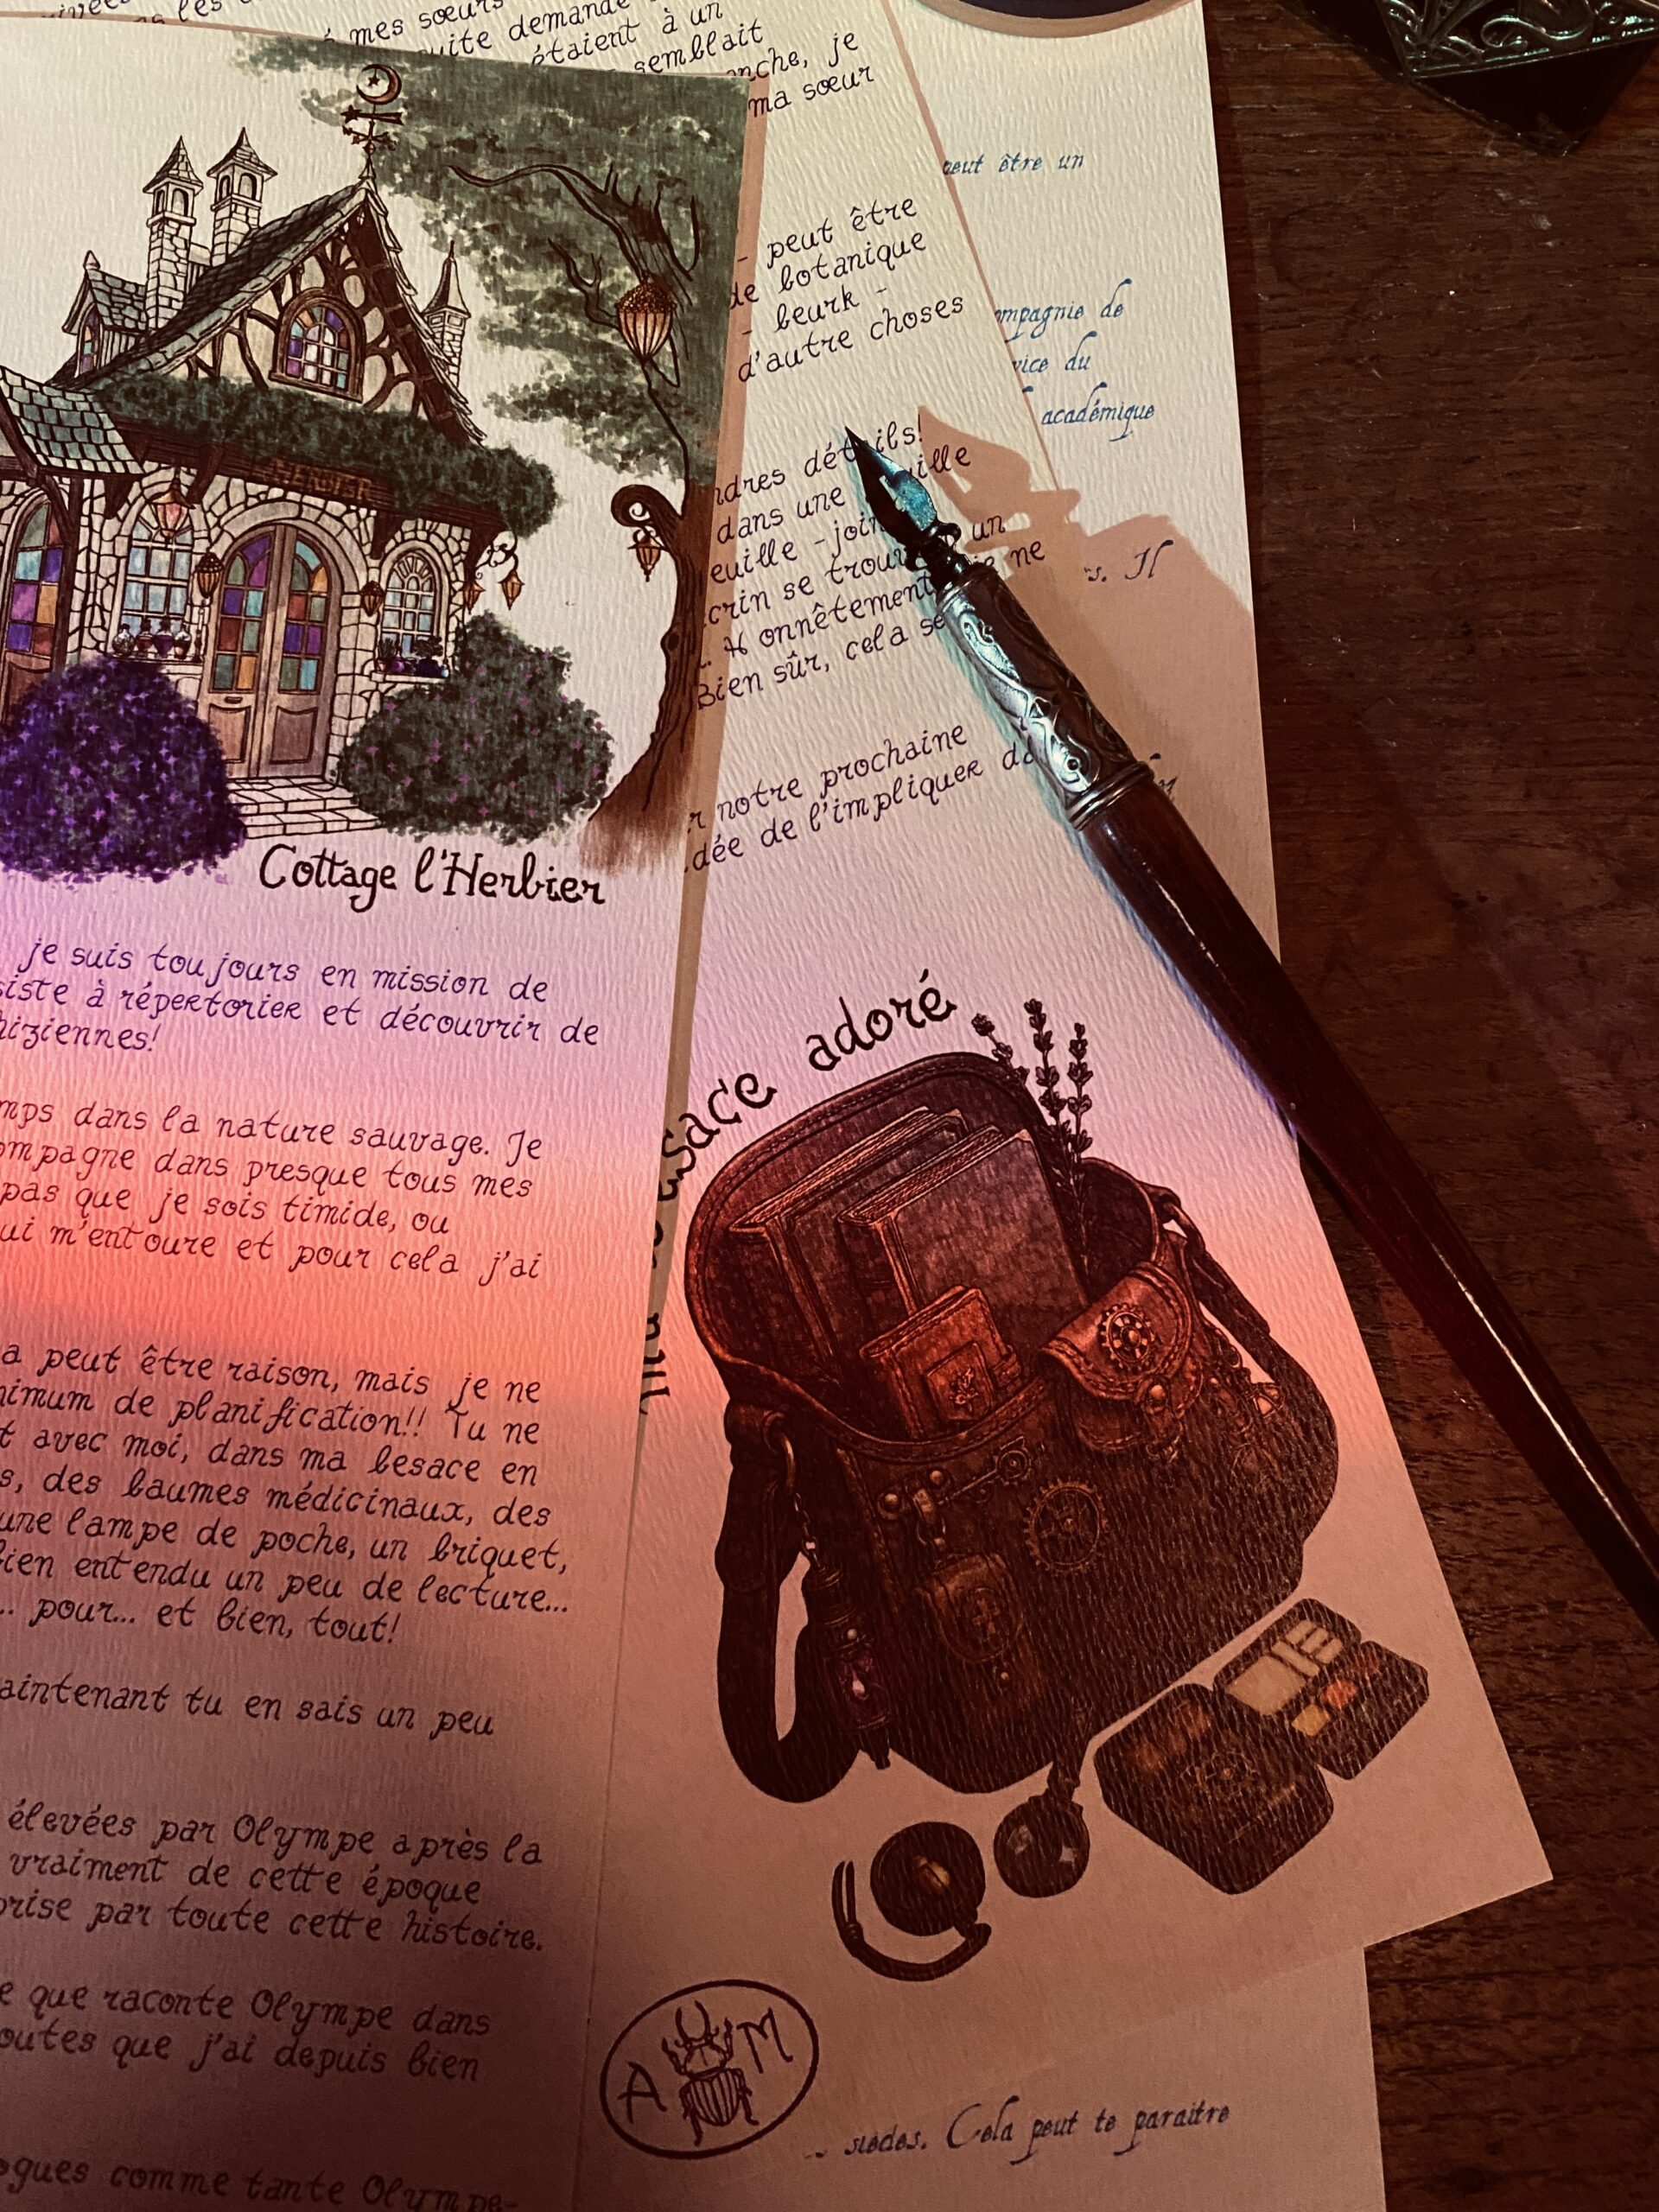 mes sœurs
uite demande
étaient à un
semblait
anche, je
ma sœur
- peut être
de botanique
- beurk -
d'autre choses
ndres détails!
dans une
euille - join
un
crin se trou
ne
Honnêtement
Bien sûr, cela se
r notre prochaine
dée de l'impliquer da
sace adoré
peut être un
mpagnie de
vice du
académique
s. Il
HERBIER
Cottage l'Herbier
je suis toujours en mission de
siste à répertorier et découvrir de
niziennes!
mps dans la nature sauvage. Je
ompagne dans presque tous mes
pas que je sois timide, ou
ui m'entoure et pour cela j'ai
a peut être raison, mais je ne
nimum de planification!! Tu ne
t avec moi, dans ma besace en
s, des baumes médicinaux, des
une lampe de poche, un briquet,
bien entendu un peu de lecture...
.. pour... et bien, tout!
aintenant tu en sais un peu
élevées par Olympe après la
vraiment de cette époque
prise par toute cette histoire.
e que raconte Olympe dans
outes que j'ai depuis bien
ogues comme tante Olympe-
A M
siècles. Cela peut te paraitre